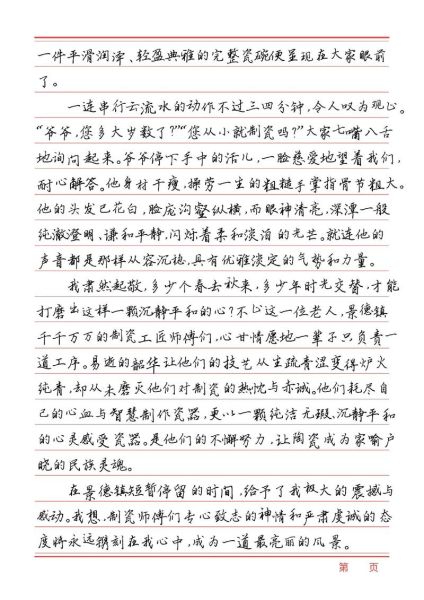 一件平滑润泽、轻盈典雅的完整瓷碗便呈现在大家眼前
了。
一连串行云流水的动作不过三四分钟,令人叹为观止。
“爷爷,您多大岁数了?”“您从小就制瓷吗?”大家七嘴八舌
地询问起来。爷爷停下手中的活儿,一脸慈爱地望着我们,
耐心解答。他身材干瘦,操劳一生的粗糙手掌指骨节粗大。
他的头发已花白,脸庞沟壑纵横,而眼神清亮,深潭一般
纯澈澄明、谦和平静,闪烁着柔和淡泊的光芒。就连他的
声音都是那样从容沉稳,具有优雅淡定的气势和力量。
我肃然起敬,多少个春去秋来,多少年时光交替,才能
打磨出这样一颗沉静平和的心?不止这一位老人,景德镇
千千万万的制瓷工匠师傅们,心甘情愿地一辈子只负责一
道工序。易逝的韶华让他们的技艺从生疏青涩变得炉火
纯青,却从未磨灭他们对制瓷的热忱与赤诚。他们耗尽自
己的心血与智慧制作瓷器,更以一颗纯洁无瑕、沉静平和
的心灵感受瓷器。是他们的不懈努力,让陶瓷成为家喻户
晓的民族灵魂。
在景德镇短暂停留的时间,给予了我极大的震撼与
感动。我想,制瓷师傅们专心致志的神情和严肃虔诚的态
度将永远镌刻在我心中,成为一道最亮丽的风景。
第 页